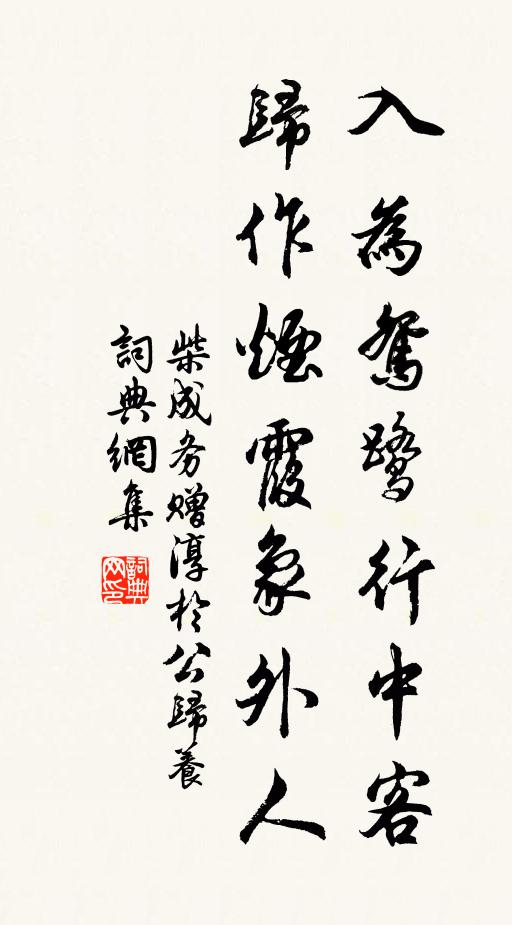 入為鴛鷺行中客
歸作煙霞象外人
柴成务赠淳於公歸養
詞典網集
詞典网印